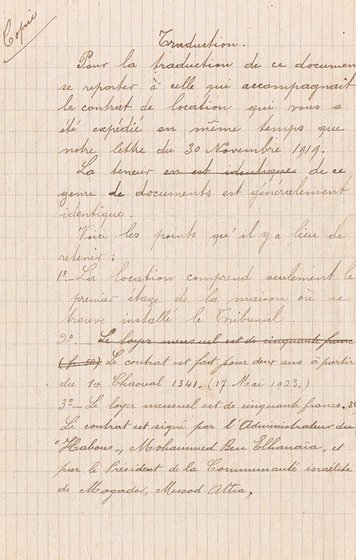 Copie
Traduction.
Pour la traduction de ce documen
se reporter à celle qui accompagnait
le contrat de location qui vous a
été expédié en même temps que
notre lettre du 30 Novembre 1919.
La teneur en est identique de ce
genre de documents est généralement
identique.
Voici les points qu'il y a lieu de
retenir :
1º— La location comprend seulement le
premier étage de la maison où se
trouve installé le Tribunal.
2º— Le loyer mensuel est de cinquante franc
(fr. 50) Le contrat est fait pour deux ans à partir
du 1er Chaoual 1341. (17 Mai 1923.)
3º— Le loyer mensuel est de cinquante francs.
Le contrat est signé par l'Administrateur des
"Habous", Mohammed Ben Elhanaïa, et
par le Président de la Communauté israélite
de Mogador, Messod Attia.